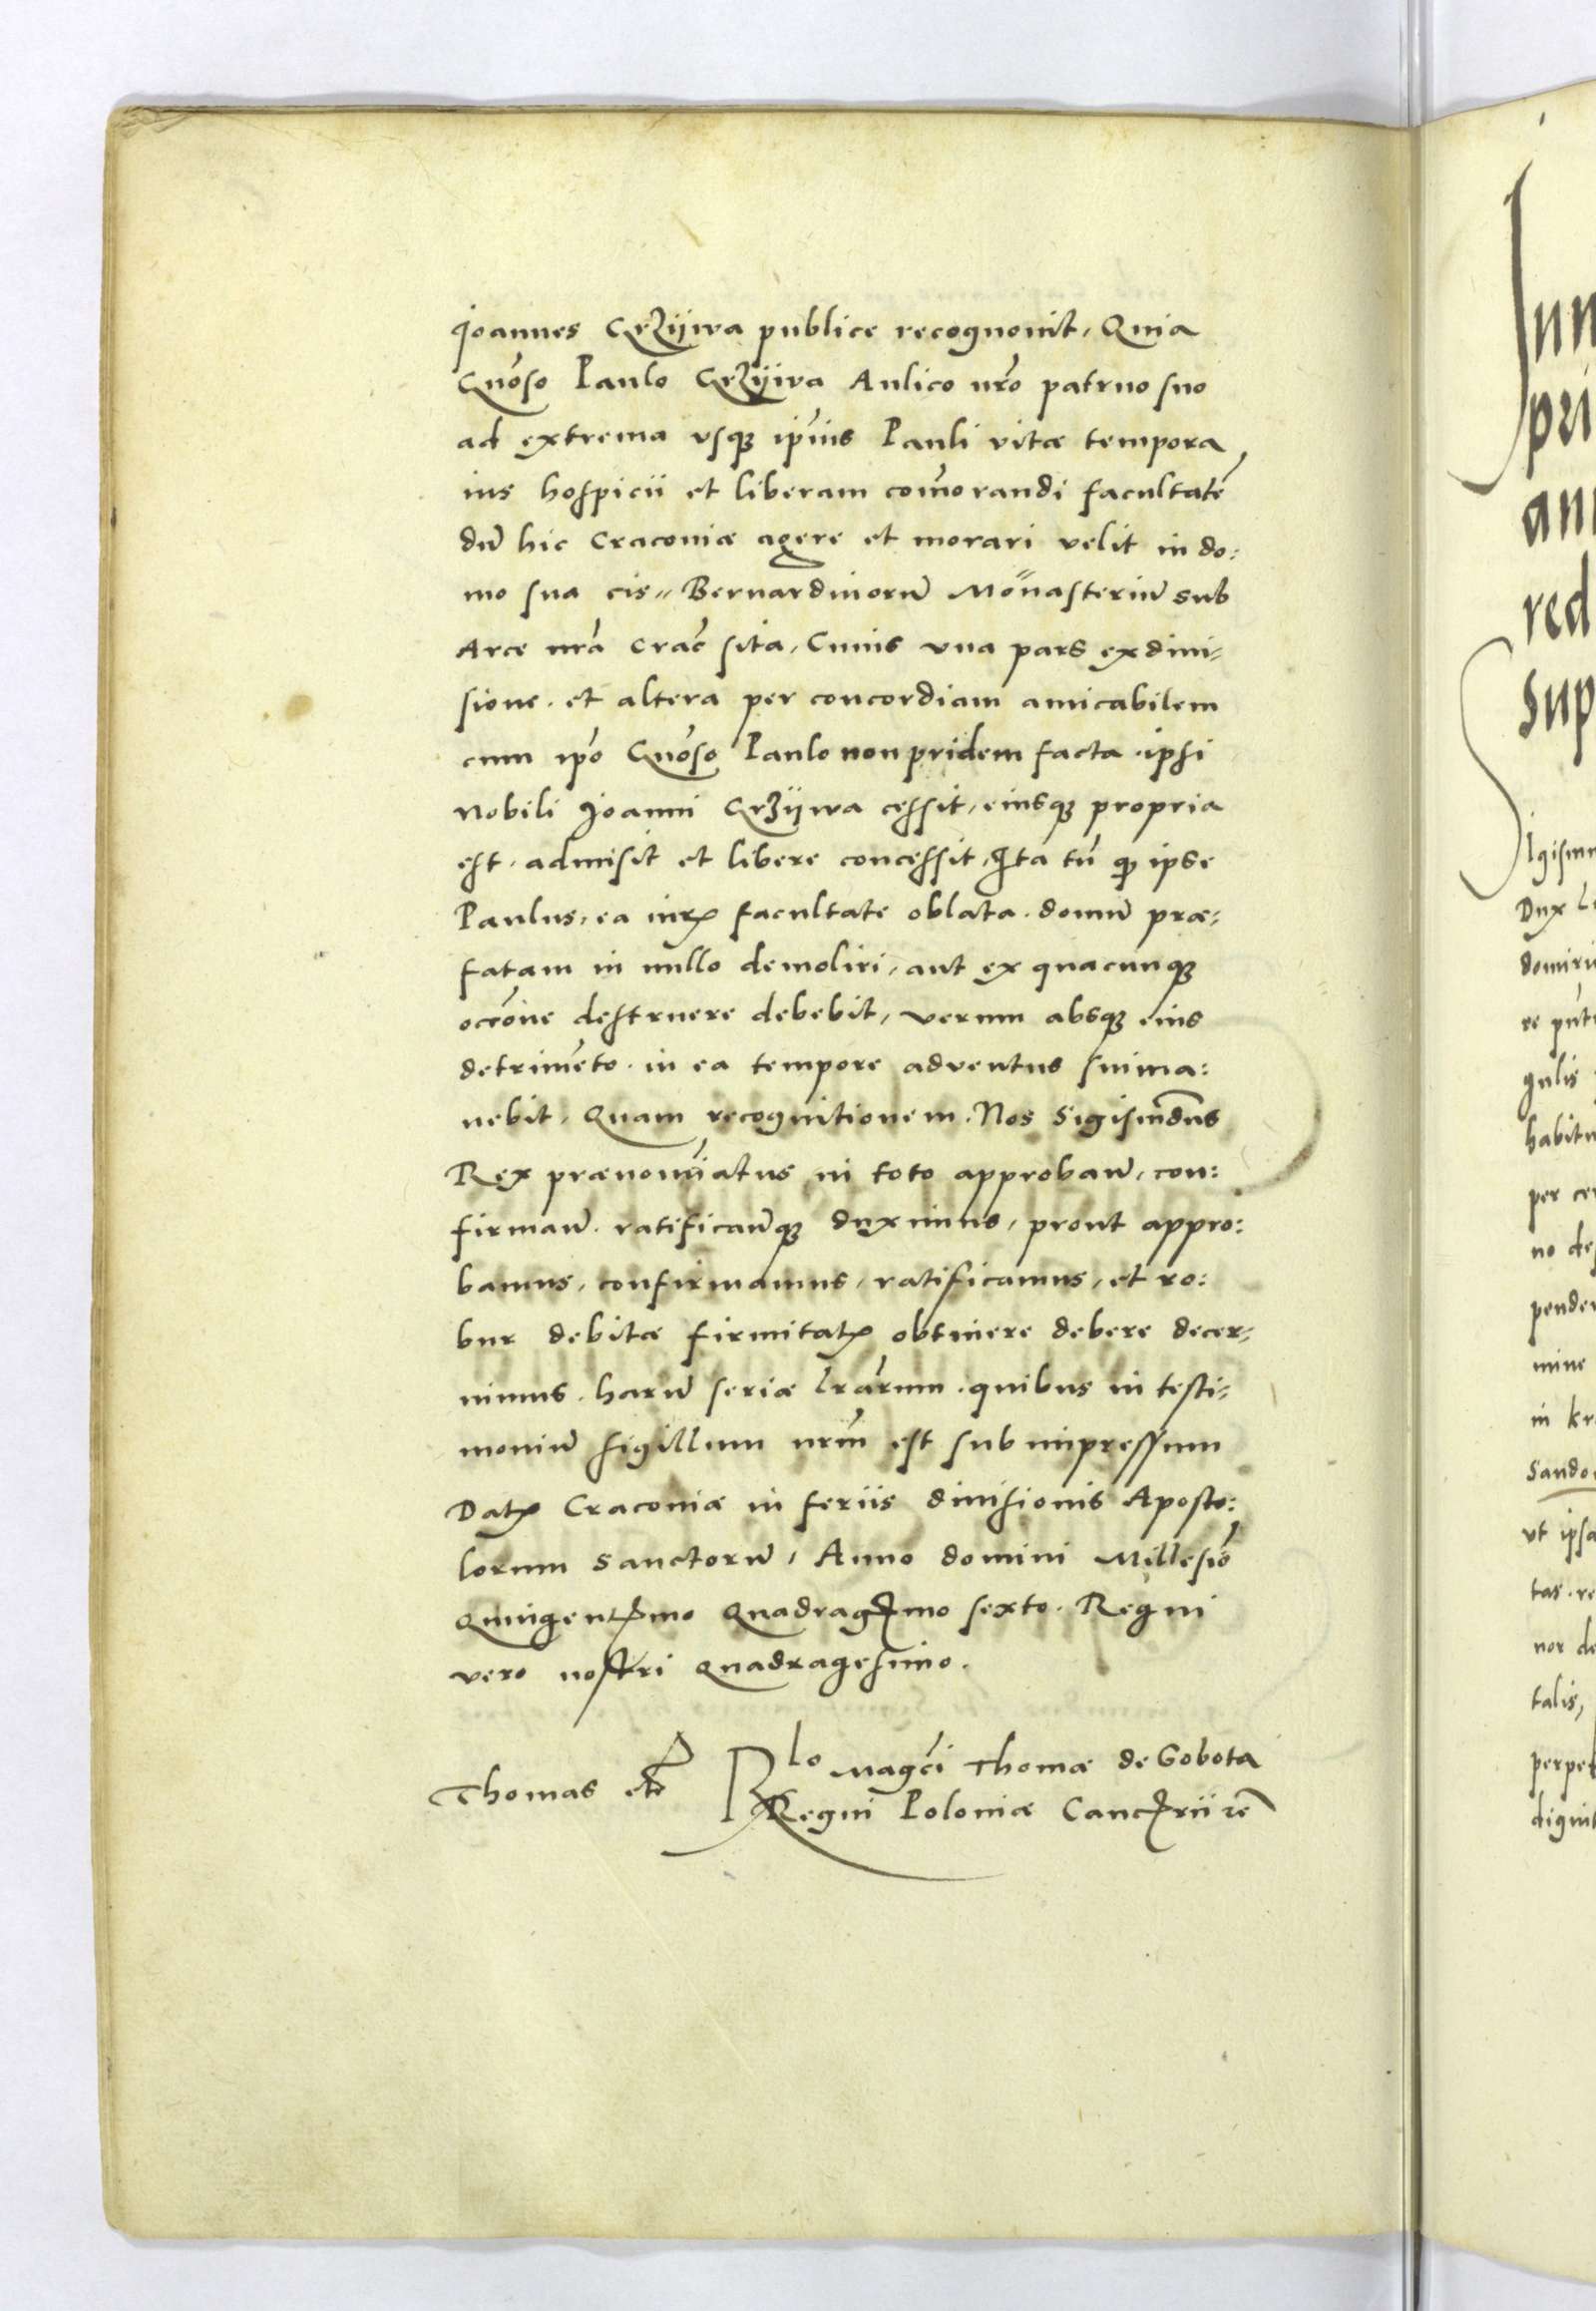 Joannes Crzÿwa publice recognouit, Quia
Gnoso Paulo Crzÿwa Aulico nro patruo suo
ad extrema vsque ipius Pauli vitæ tempora
ius hospicii et liberam comorandi facultate
du hic Cracouiæ agere et morari velit in do:
mo sua cis Bernardinoru Monasteriu sub
Arce nra Crac sita, Cuius vna pars ex diui-
sione. et altera per concordiam amicabilem
cum ipo Gnoso Paulo non pridem facta. ipsi
Nobili Joanni Crzÿwa cessit, eiusque propria
est. admisit et libere concessit, Ita tn quod ipse
Paulus, ea iuris facultate oblata. domu præ:
fatam in nullo demoliri, aut ex quacunque
occone destruere debebit, verum absque eius
detrimeto. in ea tempore aduentus sui ma:
nebit. Quam recognitionem. Nos Sigismdus
Rex prænominatus in toto approbam, con:
firmam. ratificamque duximus, prout appro:
bamus, confirmamus, ratificamus, et ro:
bur debitæ firmitatis obtinere debere decer-
nimus. haru seriæ lrarum. quibus in testi-
moniu sigillum nrm est sub impressum
Datum Cracouiæ in feriis diuisionis Aposto:
lorum Sanctoru, Anno domini Millesio
Quingentesimo Quadragesimo sexto. Regni
vero nostri Quadragesimo.
Thomas etc Rlo Magci Thomæ de Sobota
Regni Poloniæ Cancellarii re
Sigism
Dux
pri
red
sup
gulis
habitu
mine
vt ipsa
talis,